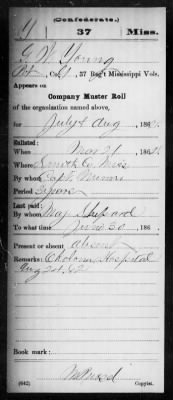 Y
(Confederate.)
37
Miss.
G W Young
Pvt, Co. , 37 Reg't Mississippi Vols.
Appears on
Company Muster Roll
of the organization named above,
for July & Aug, 186
Enlisted:
When
Where Smith Co Miss
By whom Capt
Period 3 years
Last paid:
By whom Maj Shepard
To what time June 30, 186
Present or absent Absent
Remarks: Okolona Hospital
Aug 20, 62
Book mark:
(642)
Copyist.